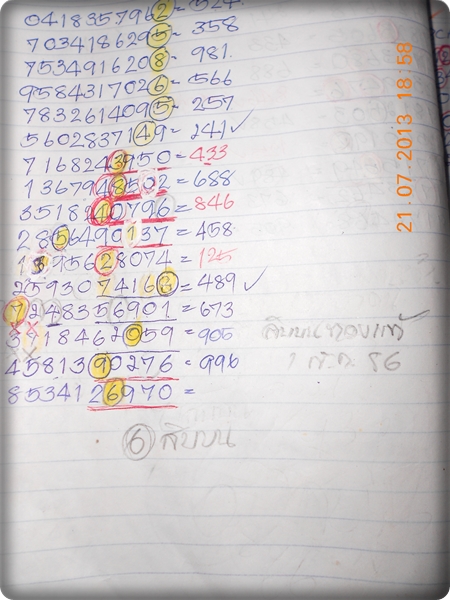 0418357962 = 524
7034186295 = 358
7534916208 = 981.
9584317026 = 566
7832614095 = 257
5602837149 = 241 ✓
7168243950 = 433
1367948502 = 688
3518240796 = 846
2856490137 = 458
1395628074 = 125
2593074168 = 489 ✓
7248356901 = 673
3718462059 = 905
4581390276 = 996
8534126970 =
6 สิบบน
21.07.2013 18:58